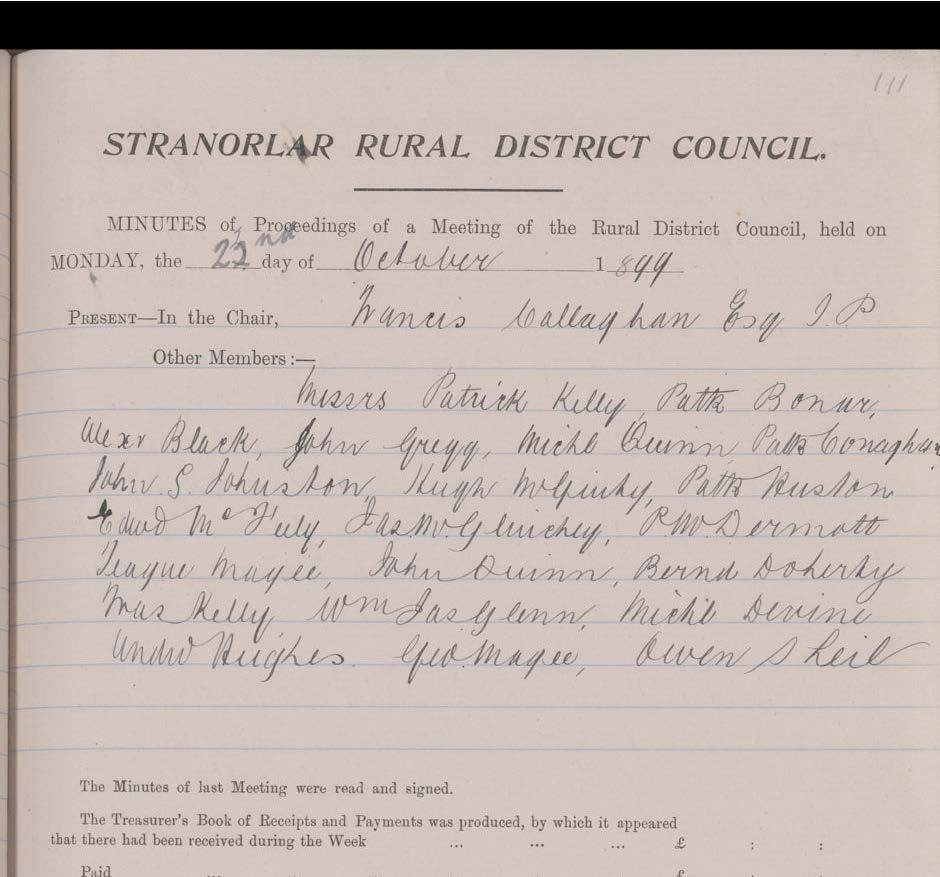 111
STRANORLAR RURAL DISTRICT COUNCIL.
MINUTES of Proceedings of a Meeting of the Rural District Council, held on
MONDAY, the 22nd day of October 1899
PRESENT—In the Chair, Francis Callaghan Esq J. P
Other Members:—
Messrs Patrick Kelly, Patk Bonar,
Alexr Black, John Gregg, Michl Quinn, Patk Conaghan
John S. Johnston, Hugh McGinty, Patk Huston
Edwd Mc Feely, Jas McGlinchey, P. McDermott
Teague Magee, John Quinn, Bernd Doherty
Kelly, Wm Jas Glenn, Michl Devine
Andw Hughes. Geo. Magee, Owen Sheil
The Minutes of last Meeting were read and signed.
The Treasurer's Book of Receipts and Payments was produced, by which it appeared
that there had been received during the Week ... ... ... £ : :
Paid ... ... ... £